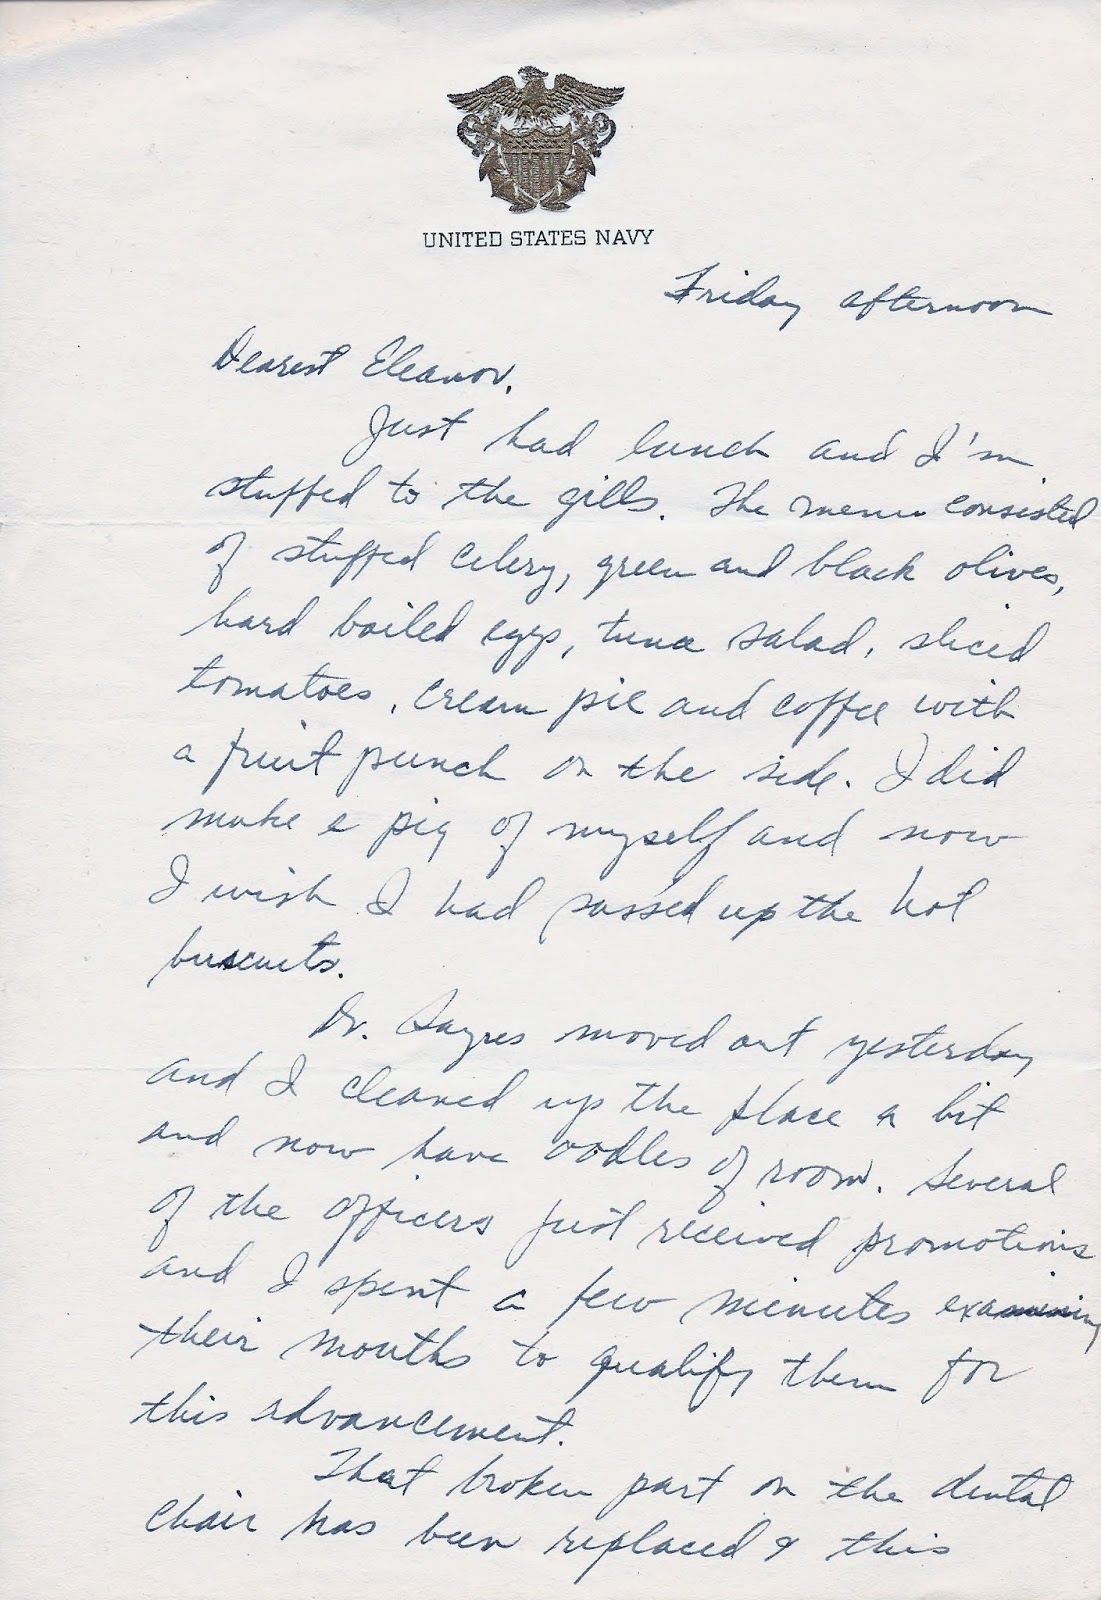 UNITED STATES NAVY
Friday afternoon
Dearest Eleanor,
Just had lunch and I'm
stuffed to the gills. The menu consisted
of stuffed celery, green and black olives,
hard boiled eggs, tuna salad, sliced
tomatoes, cream pie and coffee with
a fruit punch on the side. I did
make a pig of myself and now
I wish I had passed up the hot
biscuits.
Dr. Sayres moved out yesterday
and I cleaned up the place a bit
and now have oodles of room. Several
of the officers just received promotions
and I spent a few minutes examining
their mouths to qualify them for
this advancement.
That broken part on the dental
chair has been replaced & this